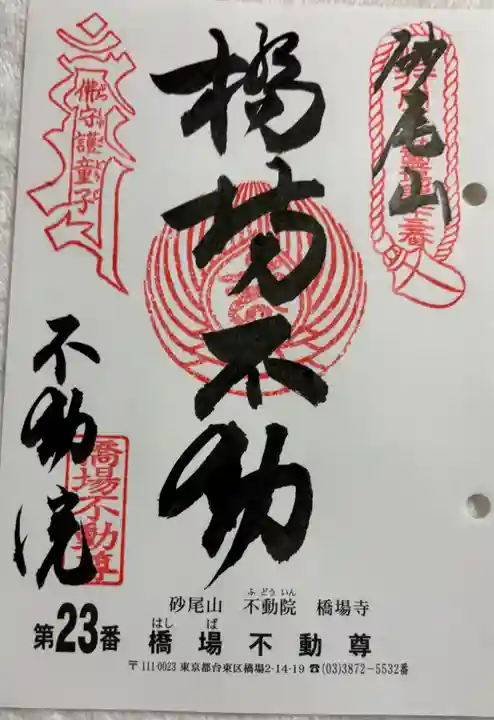 砂尾山
橋場不動
不動院
佛守護童子
橋場不動尊
砂尾山 不動院 橋場寺
ふ どう いん
第23番 橋場不動尊
はし ば
〒111-0023 東京都台東区橋場2-14-19 ☎(03)3872-5532番